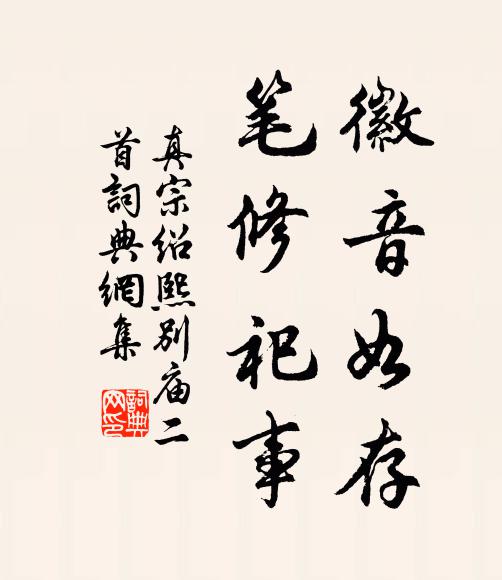 徽音如存
笔修祀事
真宗绍熙别庙二
首詞典網集
詞典
网印